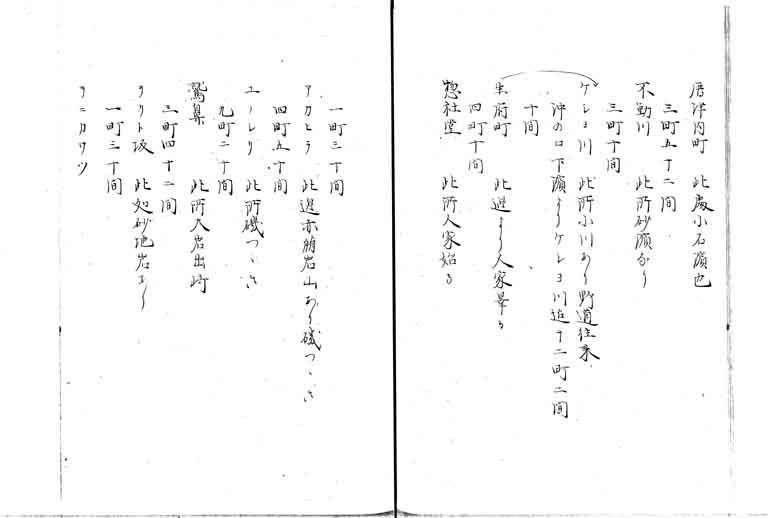 唐津内町 此處小石濱也
三町五十二間
不動川 此所砂濱なり
三町十間
ケレヨ川 此所小川あり野道往来
沖の口下濱よりケレヨ川迄十二町二間
十間
生府町 此邊より人家畢る
四町十間
惣社堂 此所人家始る
一町三十間
アカヒラ 此邊赤崩岩山あり磯つゝき
四町五十間
エノレリ 此所磯つゝき
九町二十間
鷲鼻 此所大岩出崎
三町四十二間
ヲリト坂 此処砂地岩あり
一町三十間
ヲニカワツ